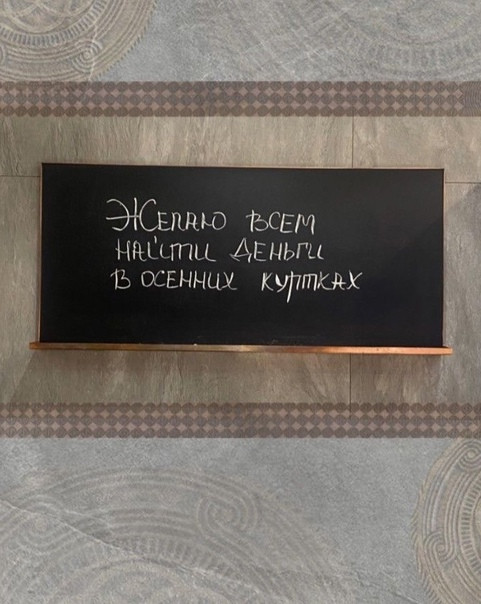 Желаю всем
найти деньги
в осенних куртках